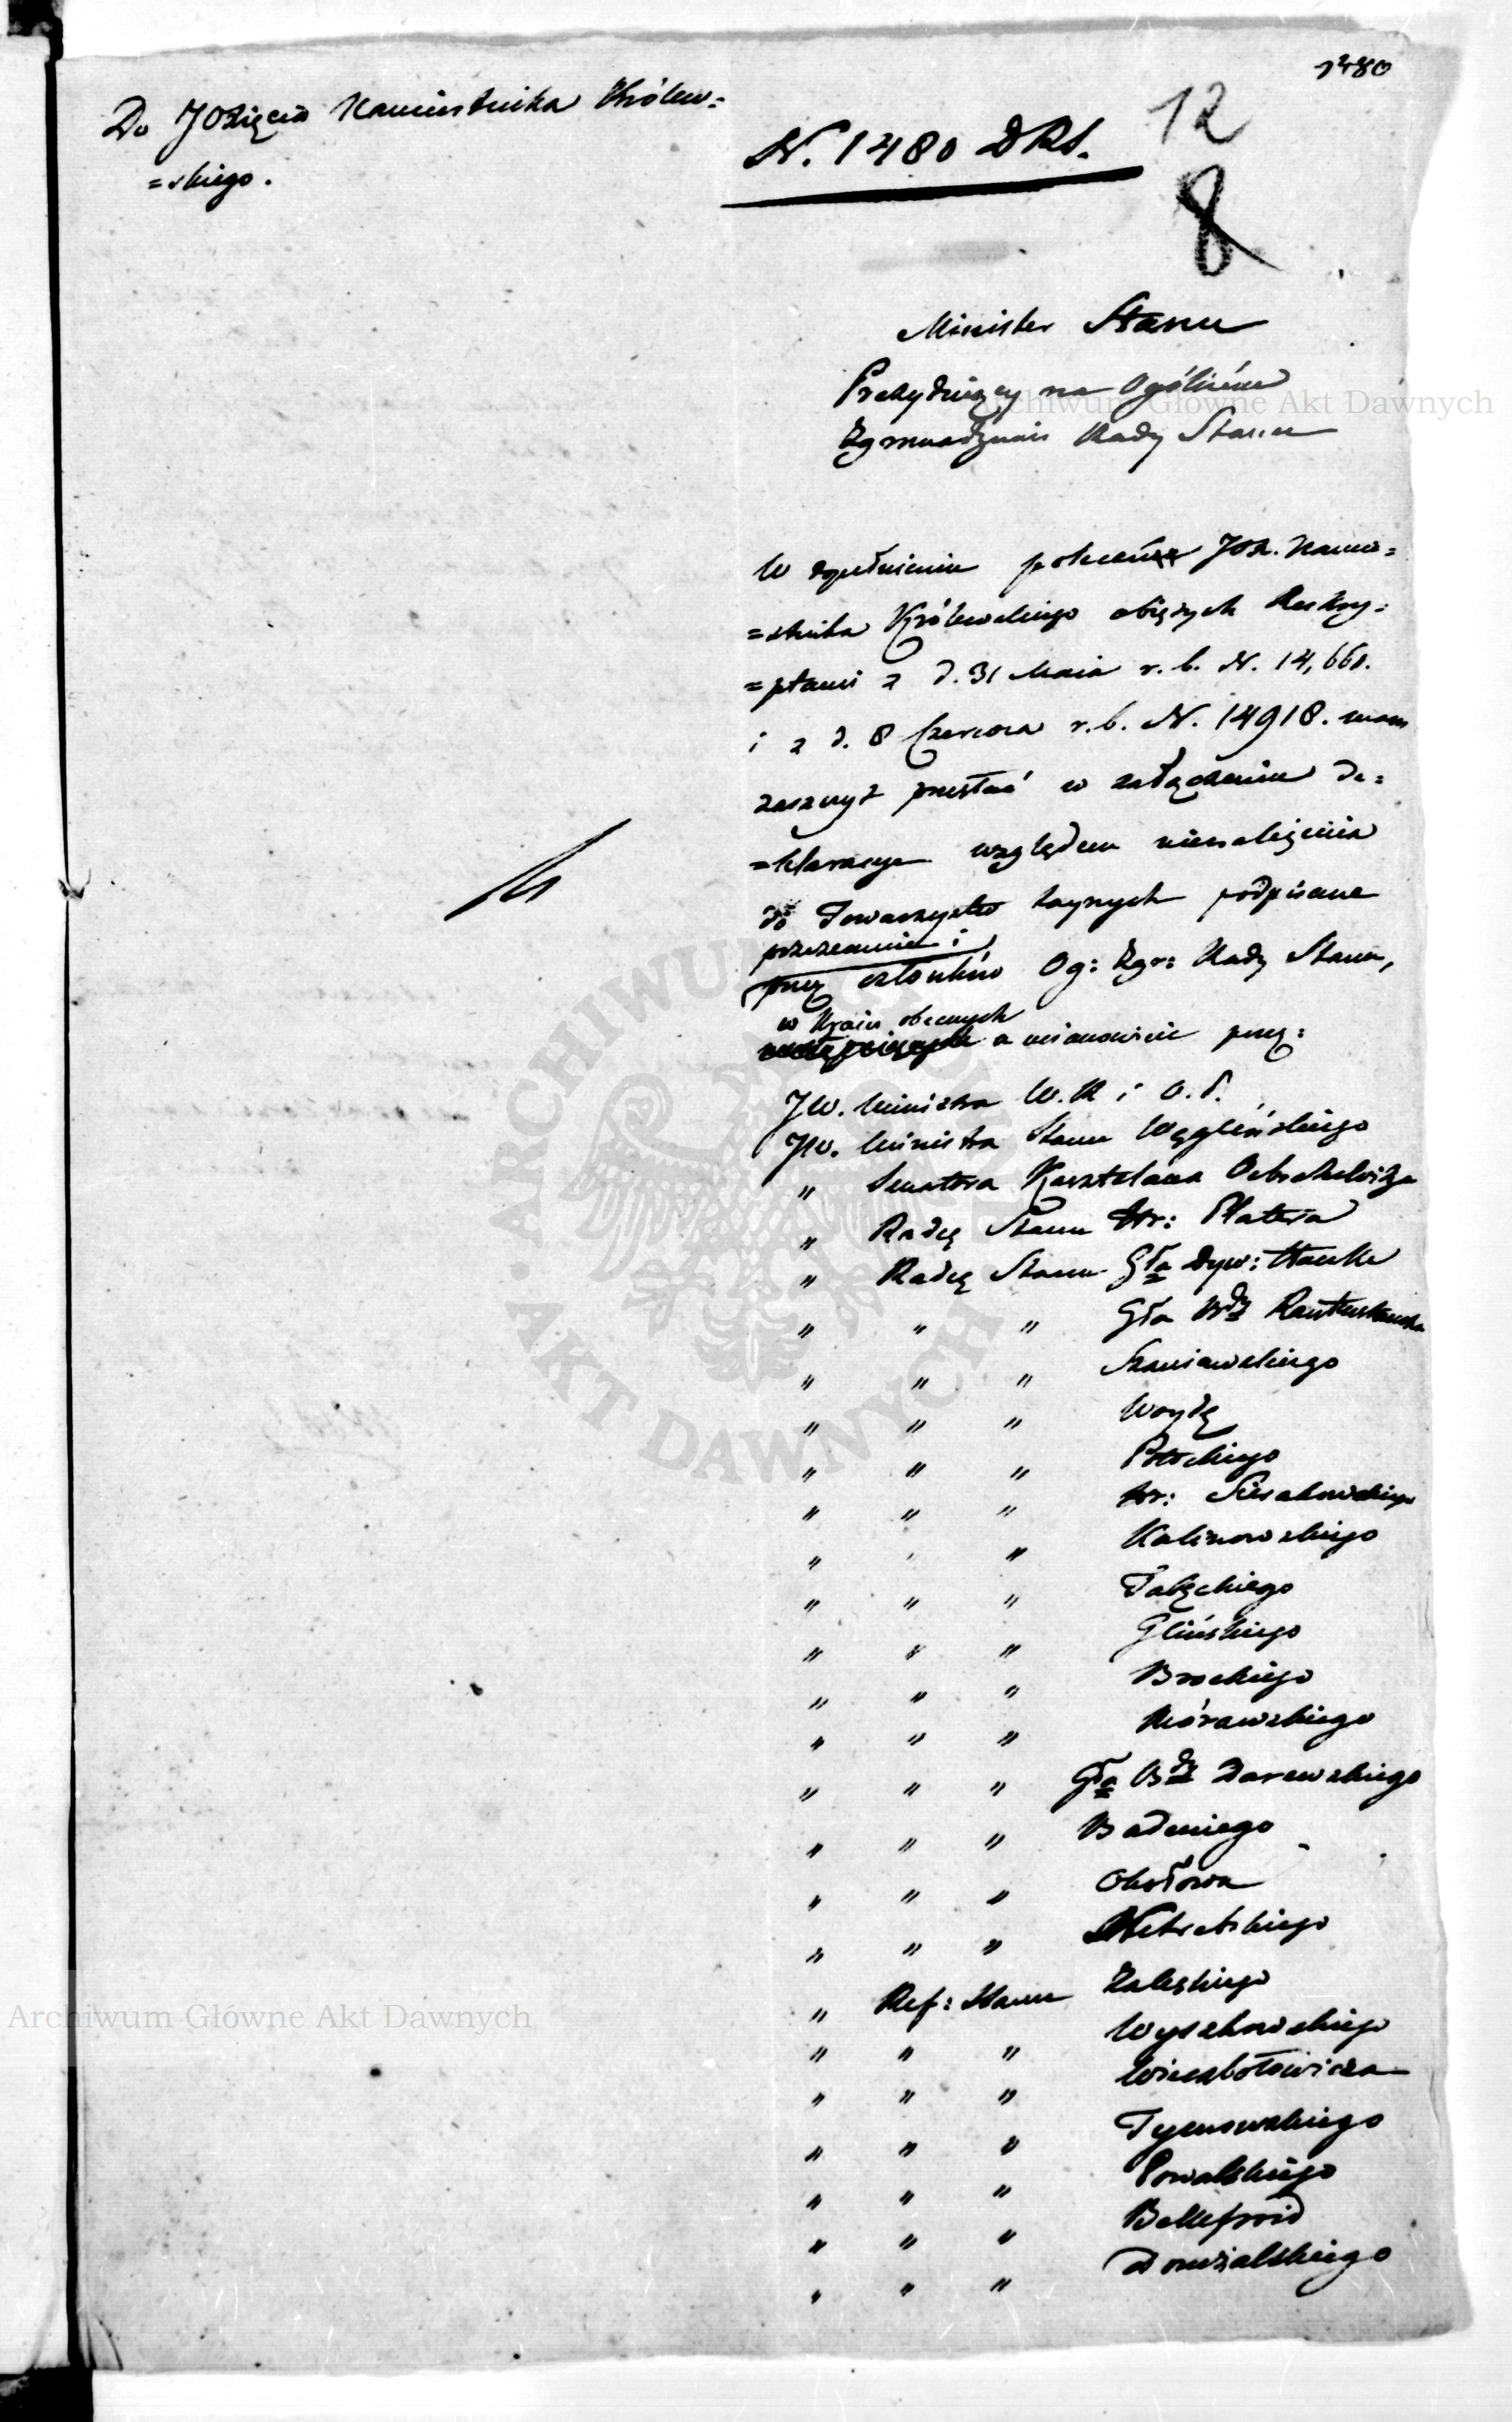 1480
Do JOXięcia Namiestnika Królew=
=skiego.
N. 1480 DRS.
12
8
Minister Stanu
Prezyduiący na Ogólném
Zgromadzeniu Rady Stanu
W dopełnieniu poleceń JOX. Namie=
=stnika Królewskiego obiętych Reskry=
=ptami z d. 31 Maia r. b. N. 14,660.
i z d. 8 Czerwca r. b. N. 14918. mam
zaszczyt przesłać w załączeniu de=
=klaracye względem nienależenia
do Towarzystw taynych podpisane
przezemnie i
przez członków Og: Zgr: Rady Stanu,
w Kraiu obecnych
a mianowicie przez:
JW. Ministra W. R i O. P.
JW. Ministra Stanu Węglińskiego
" Senatora Kasztelana Ochockiego
" Radcę Stanu Hr: Platera
" Radcę Stanu Gła Dyw: Hauke
" " " Gła Bdy Rautenstraucha
" " " Staniawskiego
" " " Woydę
" " " Potockiego
" " " Hr: Sierakowskiego
" " " Kalinowskiego
" " " Faleckiego
" " " Glińskiego
" " " Brockiego
" " " Morawskiego
" " " Gła Bdy Darewskiego
" " " Badeniego
" " " Okołowa
" " " Nekrebskiego
" Ref: Stanu Zaleskiego
" " " Wyszkowskiego
" " " Wierzbołowicza
" " " Tymowskiego
" " " Powalskiego
" " " Bellefroid
" " " Domżalskiego
Archiwum Główne Akt Dawnych
Archiwum Główne Akt Dawnych
ARCHIWUM GŁÓWNE AKT DAWNYCH